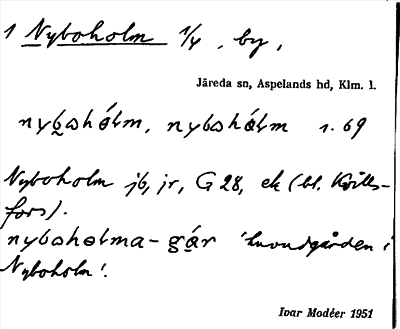 1 Nyboholm 1/4, by,
Järeda sn, Aspelands hd, Klm. l.
nybohólm, nybohólm s. 69
Nyboholm jb, jr, G 28, ek (bl. Kvills-
fors).
nyboholma-gár 'huvudgården i
Nyboholm'.
Ivar Modéer 1951